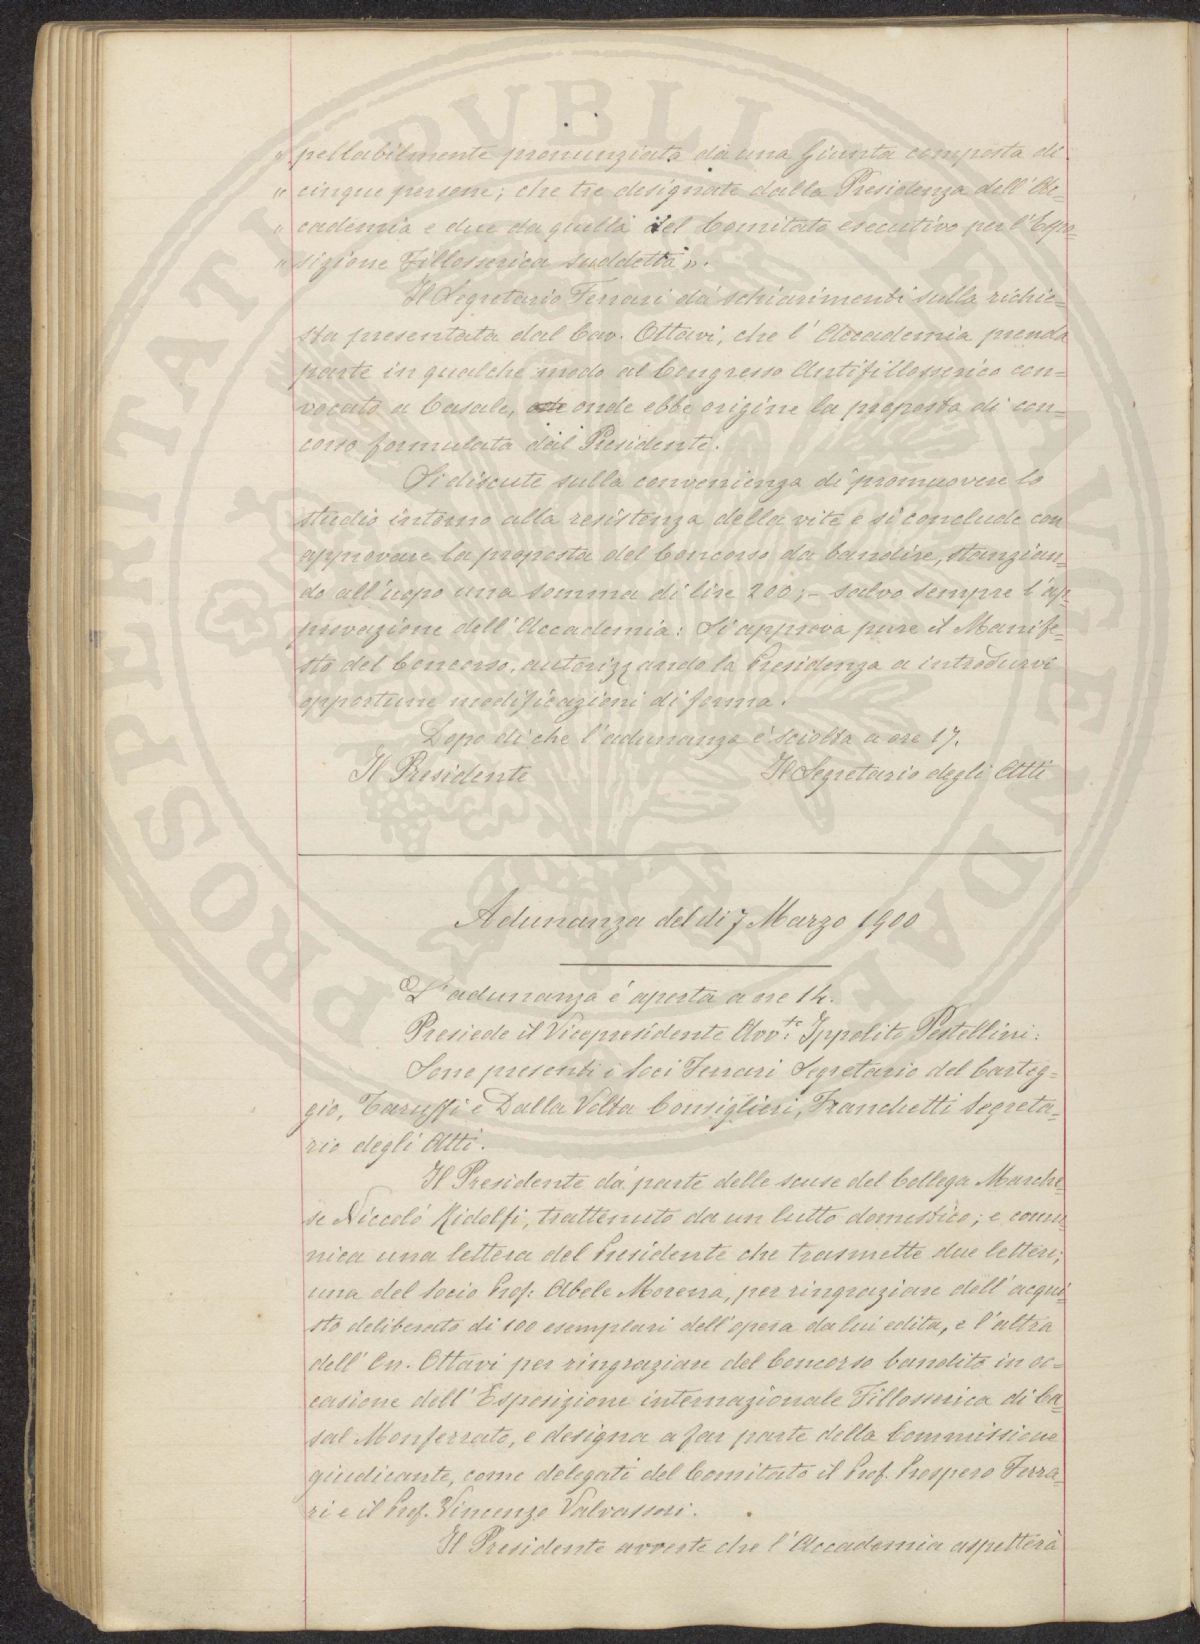 " pellabilmente pronunziata da una Giunta composta di
" cinque persone; che tre designate dalla Presidenza dell'Ac-
" cademia e due da quella del Comitato esecutivo per l'Espo-
" sizione Fillosserica suddetta".
Il Segretario Ferrari dà schiarimenti sulla richie=
sta presentata dal Cav. Ottavi, che l'Accademia prenda
parte in qualche modo al Congresso Antifillosserico con=
vocato a Casale, onde ebbe origine la proposta di con=
corso formulata dal Presidente.
Si discute sulla convenienza di promuovere lo
studio intorno alla resistenza della vite e si conclude con
approvare la proposta del Concorso da bandire, stanzian=
do all'uopo una somma di lire 200; - salvo sempre l'ap=
provazione dell'Accademia: Si approva pure il Manife=
sto del Concorso, autorizzando la Presidenza a introdurvi
opportune modificazioni di forma.
Dopo di che l'adunanza è sciolta a ore 17.
Il Presidente Il Segretario degli Atti
Adunanza del di 7 Marzo 1900
L'adunanza è aperta a ore 14.
Presiede il Vicepresidente Avv.te Ippolito Pestellini.
Sono presenti i Soci Ferrari Segretario del Carteg=
gio, Taruffi e Dalla Volta Consiglieri, Franchetti Segreta=
rio degli Atti.
Il Presidente dà parte delle scuse del Collega Marche=
se Niccolò Ridolfi, trattenuto da un lutto domestico; e comu=
nica una lettera del Presidente che trasmette due lettere;
una del Socio Prof. Abele Morena, per ringraziare dell'acqui=
sto deliberato di 100 esemplari dell'opera da lui edita, e l'altra
dell'On. Ottavi per ringraziare del Concorso bandito in oc=
casione dell'Esposizione internazionale Fillosserica di Ca=
sal Monferrato, e designa a far parte della Commissione
giudicante, come delegati del Comitato il Prof. Prospero Ferra=
ri e il Prof. Vincenzo Valvassori.
Il Presidente avverte che l'Accademia aspetterà
PROSPERITATI PVBLICAE AVGENDAE